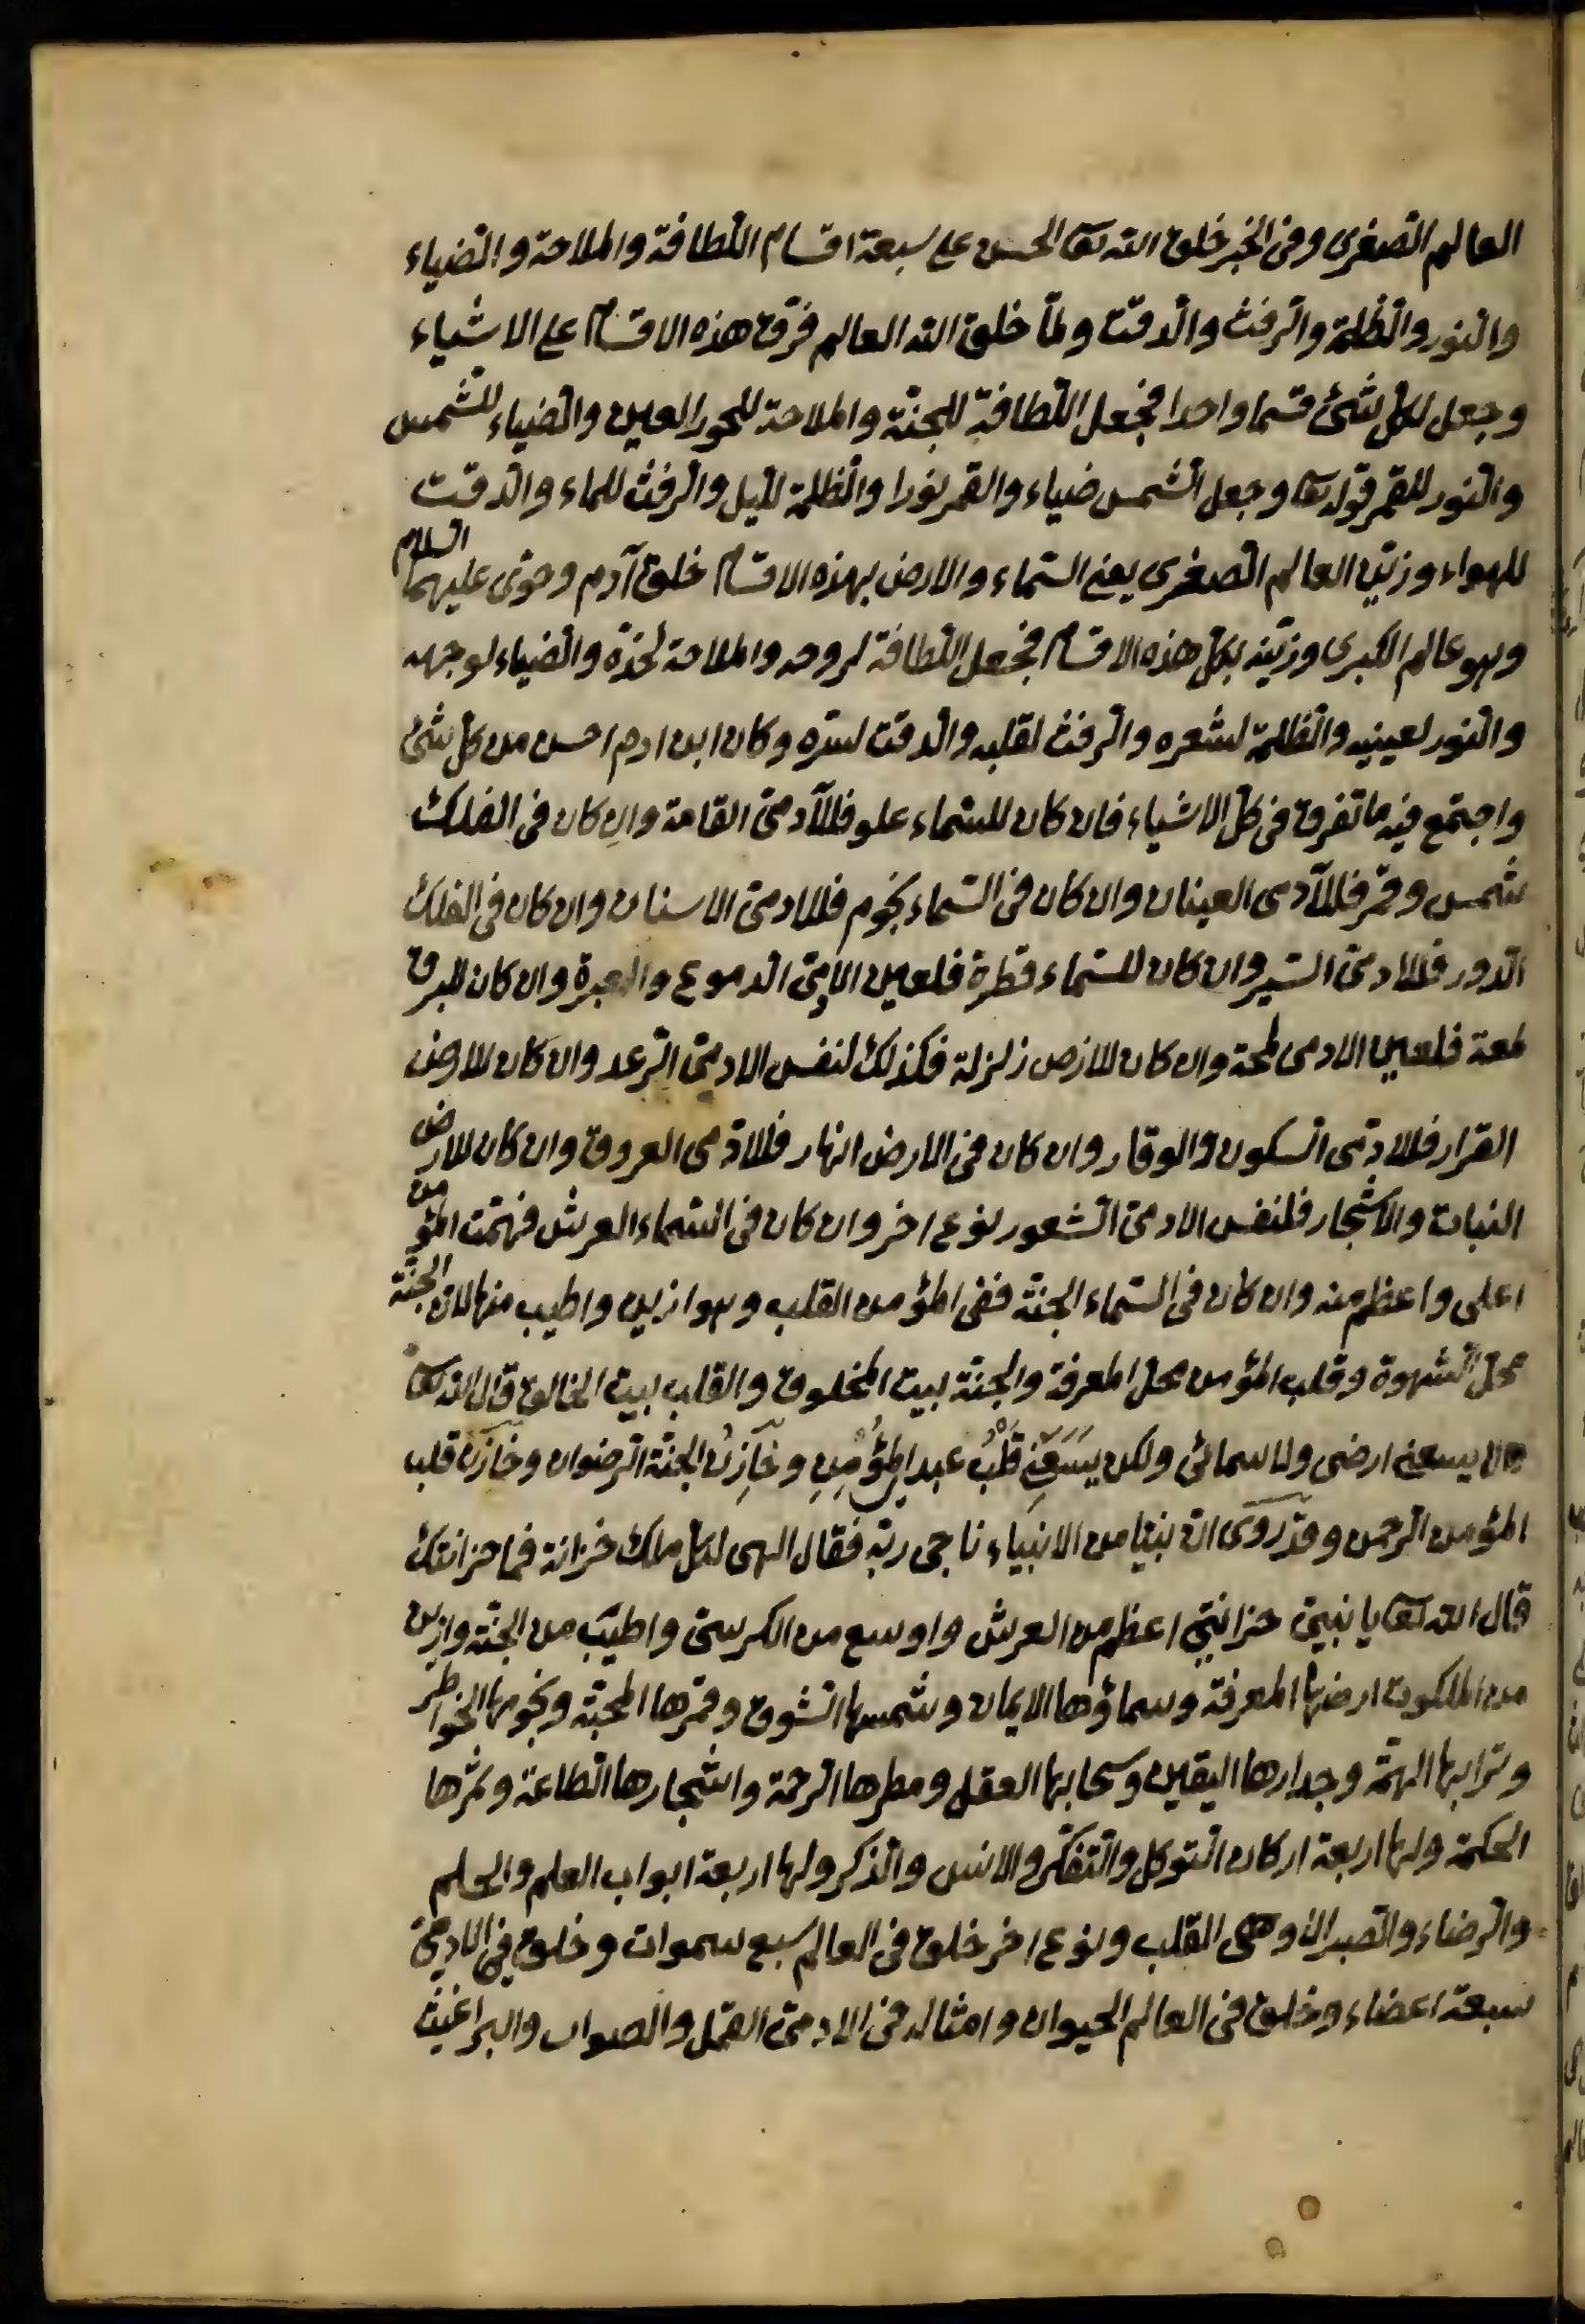 العالم الصغرى وفى الخبر خلق الله تعا الحسن على سبعة اقسام اللطافة والملاحة والضياء
والنور والظلمة والرقة والدقت ولما خلق الله العالم فرق هذه الاقسام على الاشياء
وجعل لكل شئ قسما واحدا فجعل اللطافة للجنة والملاحة للحور العين والضياء للشمس
والنور للقمر قوله تعا وجعل الشمس ضياء والقمر نورا والظلمة لليل والرقت للماء والدقت
للهواء وزين العالم الصغرى يعنى السماء والارض بهذه الاقسام خلق آدم وحوى عليهما السلام
وهو عالم الكبرى وزينه بكل هذه الاقسام فجعل اللطافة لروحه والملاحة لخده والضياء لوجهه
والنور لعينيه والظلمة لشعره والرقت لقلبه والدقت لسره وكان ابن ادم احسن من كل شئ
واجتمع فيه ما تفرق فى كل الاشياء فان كان للسماء علو فللآدمى القامة وان كان فى الفلك
شمس وقمر فللآدمى العينان وان كان فى السماء نجوم فللادمى الاسنان وان كان فى الفلك
الدور فللادمى السير وان كان للسماء قطرة فلعين الادمى الدموع والعبرة وان كان للبرق
لمعة فلعين الادمى لمحة وان كان للارض زلزلة فكذلك لنفس الادمى الرعد وان كان للارض
القرار فللادمى السكون والوقار وان كان فى الارض انهار فللادمى العروق وان كان للارض
النبات والاشجار فلنفس الادمى الشعور نوع اخر وان كان فى السماء العرش فهمت المؤمن
اعلى واعظم منه وان كان فى السماء الجنة ففى المؤمن القلب وهو ازين واطيب منها لان الجنة
محل الشهوة وقلب المؤمن محل المعرفة والجنة بيت المخلوق والقلب بيت الخالق قال الله تعا
لا يسعنى ارضى ولا سمائى ولكن يَسَعُنِى قَلْبُ عبدى المُؤْمِنِ وخَازِنُ الجنة الرضوان وخازن قلب
المؤمن الرحمن وقد روى ان نبيا من الانبياء ناجى ربه فقال الهى لكل ملك خزانة فما خزانتك
قال الله تعا يا نبيى خزانتى اعظم من العرش واوسع من الكرسى واطيب من الجنة وازين
من الملكوت ارضها المعرفة وسماؤها الايمان وشمسها الشوق وقمرها المحبة ونجومها الخواطر
وترابها الهمة وجدارها اليقين وسحابها العقل ومطرها الرحمة واشجارها الطاعة وثمرها
الحكمة ولها اربعة اركان التوكل والتفكر والانس والذكر ولها اربعة ابواب العلم والحلم
والرضاء والصبر الا وهى القلب ونوع اخر خلق فى العالم سبع سموات وخلق فى الادمى
سبعة اعضاء وخلق فى العالم الحيوان وامثاله فى الادمى القمل والصواب والبراغيث